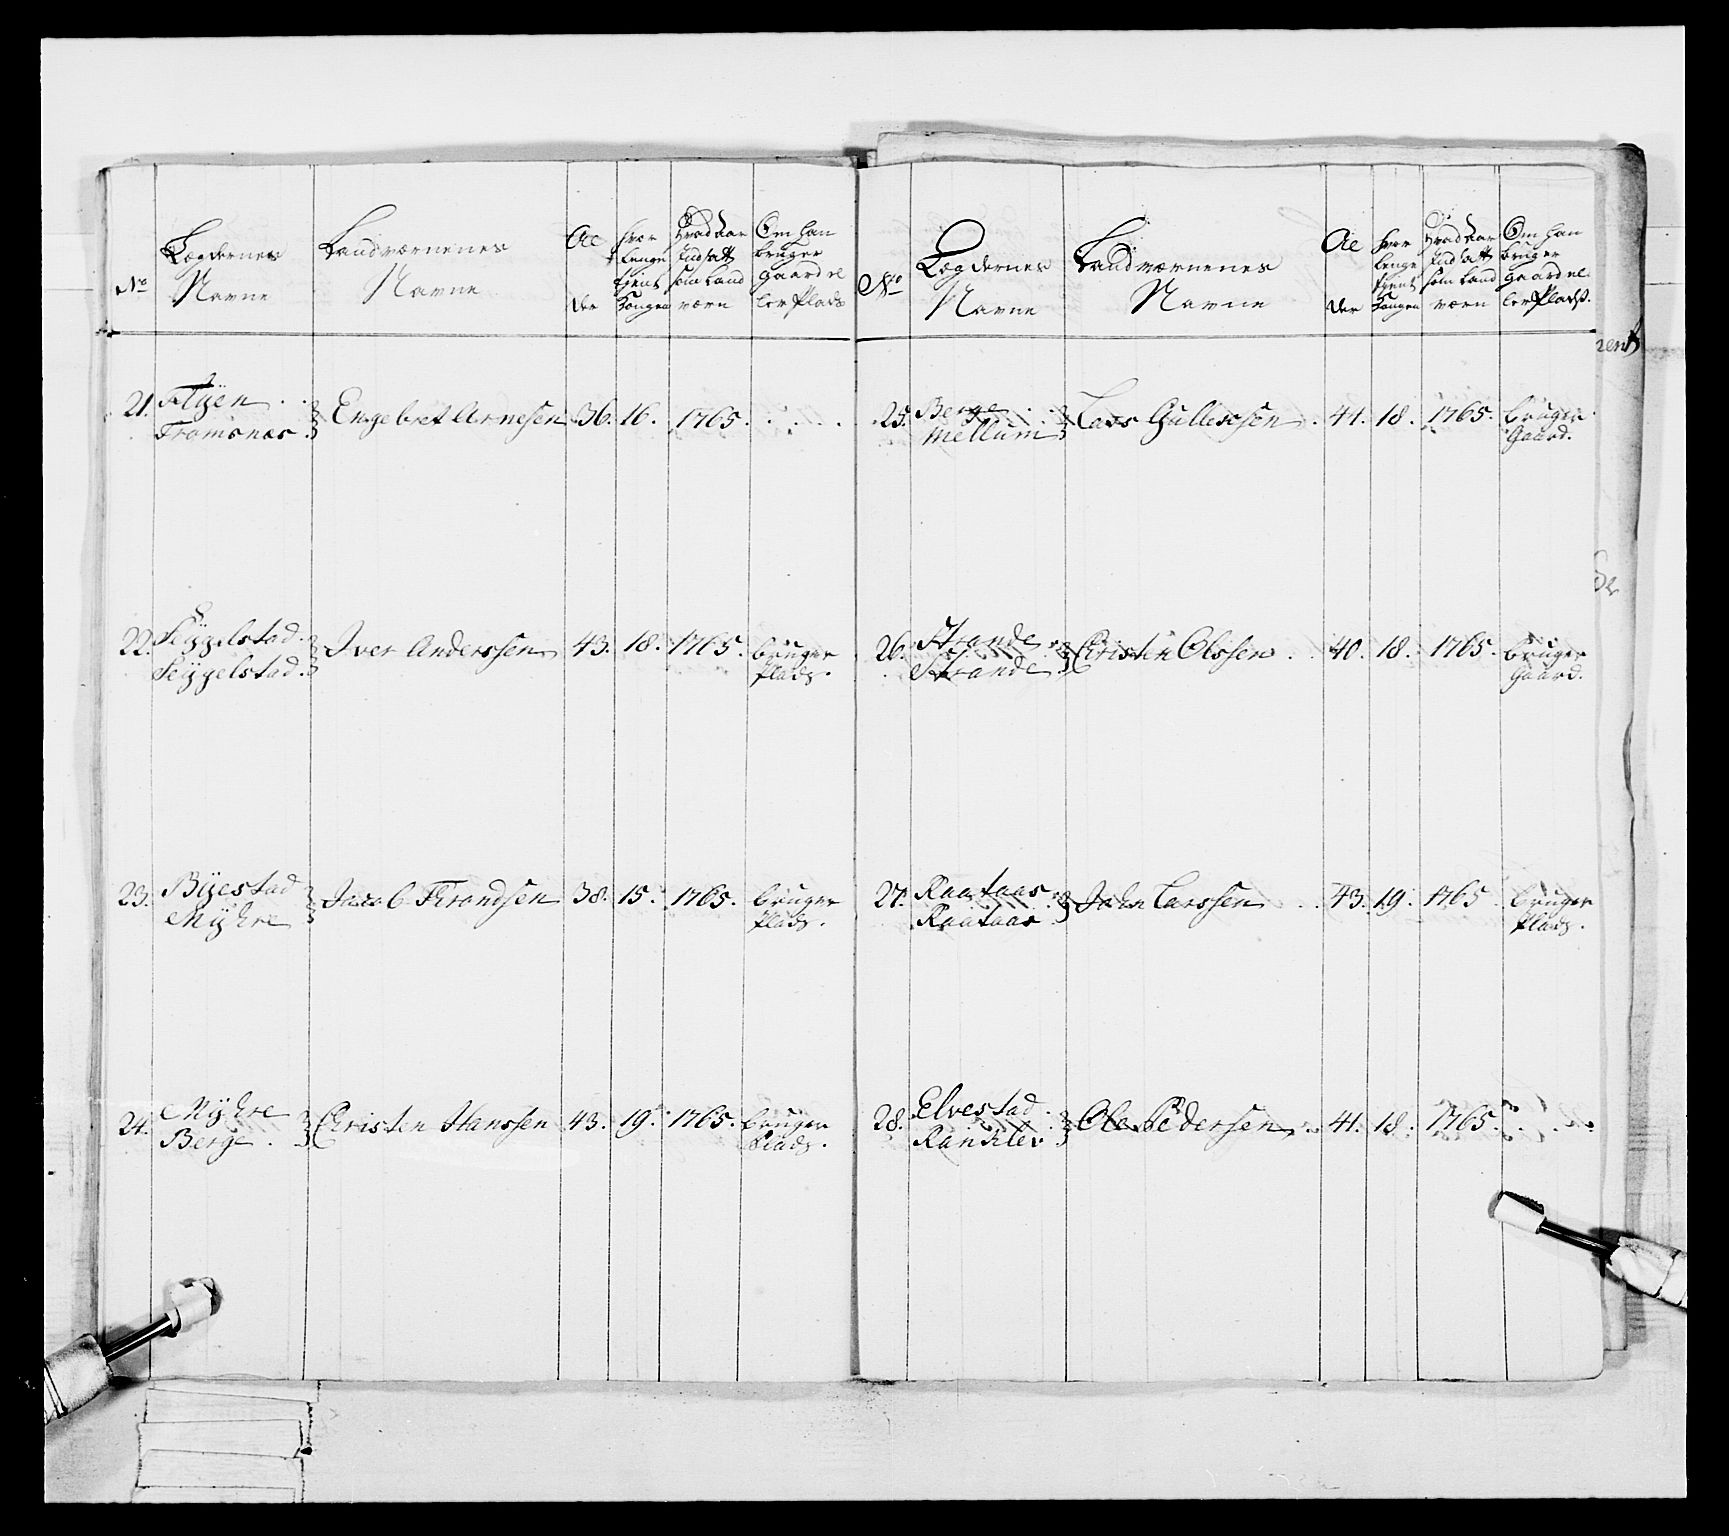 No
Lægdernes
Navne
Landværnenes
Navne
Al
der
hvor
lenge
tient
Kongen
Hvad aar
Indsatt
som Land
værn
Om han
bruger
gaard el
ler Plads
21. Flyen . .
Tromsnæs
Engebret Arnesen 36. 16. 1765. . . . .
22. Seÿgelstad.
Seÿgelstad.
Iver Anderssen 43. 18. 1765. bruger
plads.
23. Bÿestad
Mÿhre
Jacob Trondsen 38. 15. 1765. bruger
plads.
24. Mÿhre
Berg .
Christen Hanssen 43. 19. 1765. bruger
plads.
No
Lægdernes
Navne
Landværnenes
Navne
Al
der
hvor
lenge
tient
Kongen
Hvad aar
Indsatt
som Land
værn
Om han
bruger
gaard el
ler Plads.
25. Berge .
Mellum
Lars Gullexsen . 41. 18. 1765. bruger
Gaard.
26. Strande
Strande
Christen Olssen . . 40. 18. 1765. bruger
Gaard.
27. Raataas
Raataas
John Larssen . . 43. 19. 1765 bruger
plads.
28. Elvestad .
Ranklev
Ole Pedersen . 41. 18. 1765. . . .